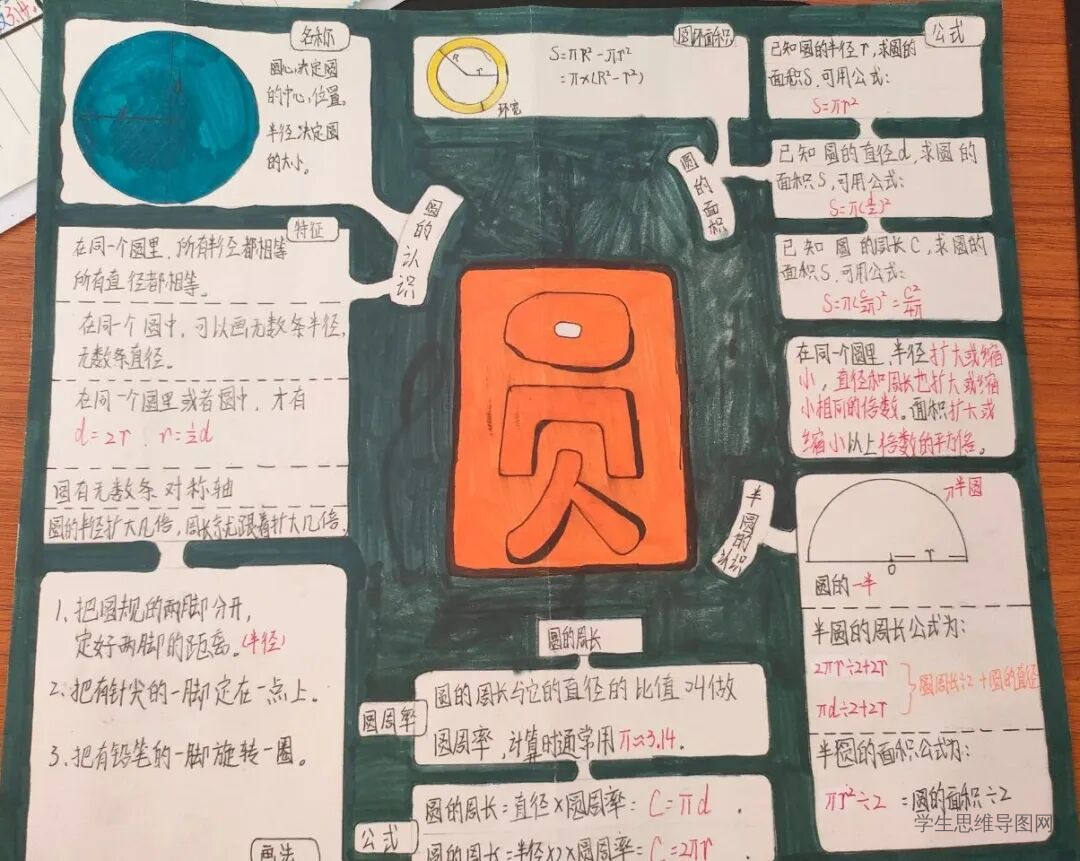 3.14.
名称
圆心决定圆
的中心,位置。
半径决定圆
的大小。
圆的认识
特征
在同一个圆里,所有半径都相等
所有直径都相等。
在同一个圆中,可以画无数条半径,
无数条直径。
在同一个圆里或者圆中,才有
d=2r. r=½d
圆有无数条对称轴
圆的半径扩大几倍,周长就跟着扩大几倍.
1.把圆规的两脚分开,
定好两脚的距离。(半径)
2.把有针尖的一脚定在一点上.
3.把有铅笔的一脚旋转一圈。
画法
圆环面积
R
r
环宽
S=πR²-πr²
=π×(R²-r²)
圆的面积
公式
已知圆的半径r,求圆的
面积S,可用公式:
S=πr²
已知圆的直径d,求圆的
面积S,可用公式:
S=π(d/2)²
已知圆的周长C,求圆的
面积S,可用公式:
S=π(C/2π)²=C²/4π
在同一个圆里 半径扩大或缩
小,直径和周长也扩大或缩
小相同的倍数。面积扩大或
缩小以上倍数的平方倍。
圆
半圆的认识
半圆
r
o
圆的一半
半圆的周长公式为:
2πr÷2+2r
πd÷2+2r
圆周长÷2+圆的直径
半圆的面积公式为:
πr²÷2 =圆的面积÷2
圆的周长
圆周率
圆的周长与它的直径的比值叫做
圆周率,计算时通常用π≈3.14.
公式
圆的周长=直径×圆周率= C=πd.
圆的周长=半径×2×圆周率= C=2πr
学生思维导图网